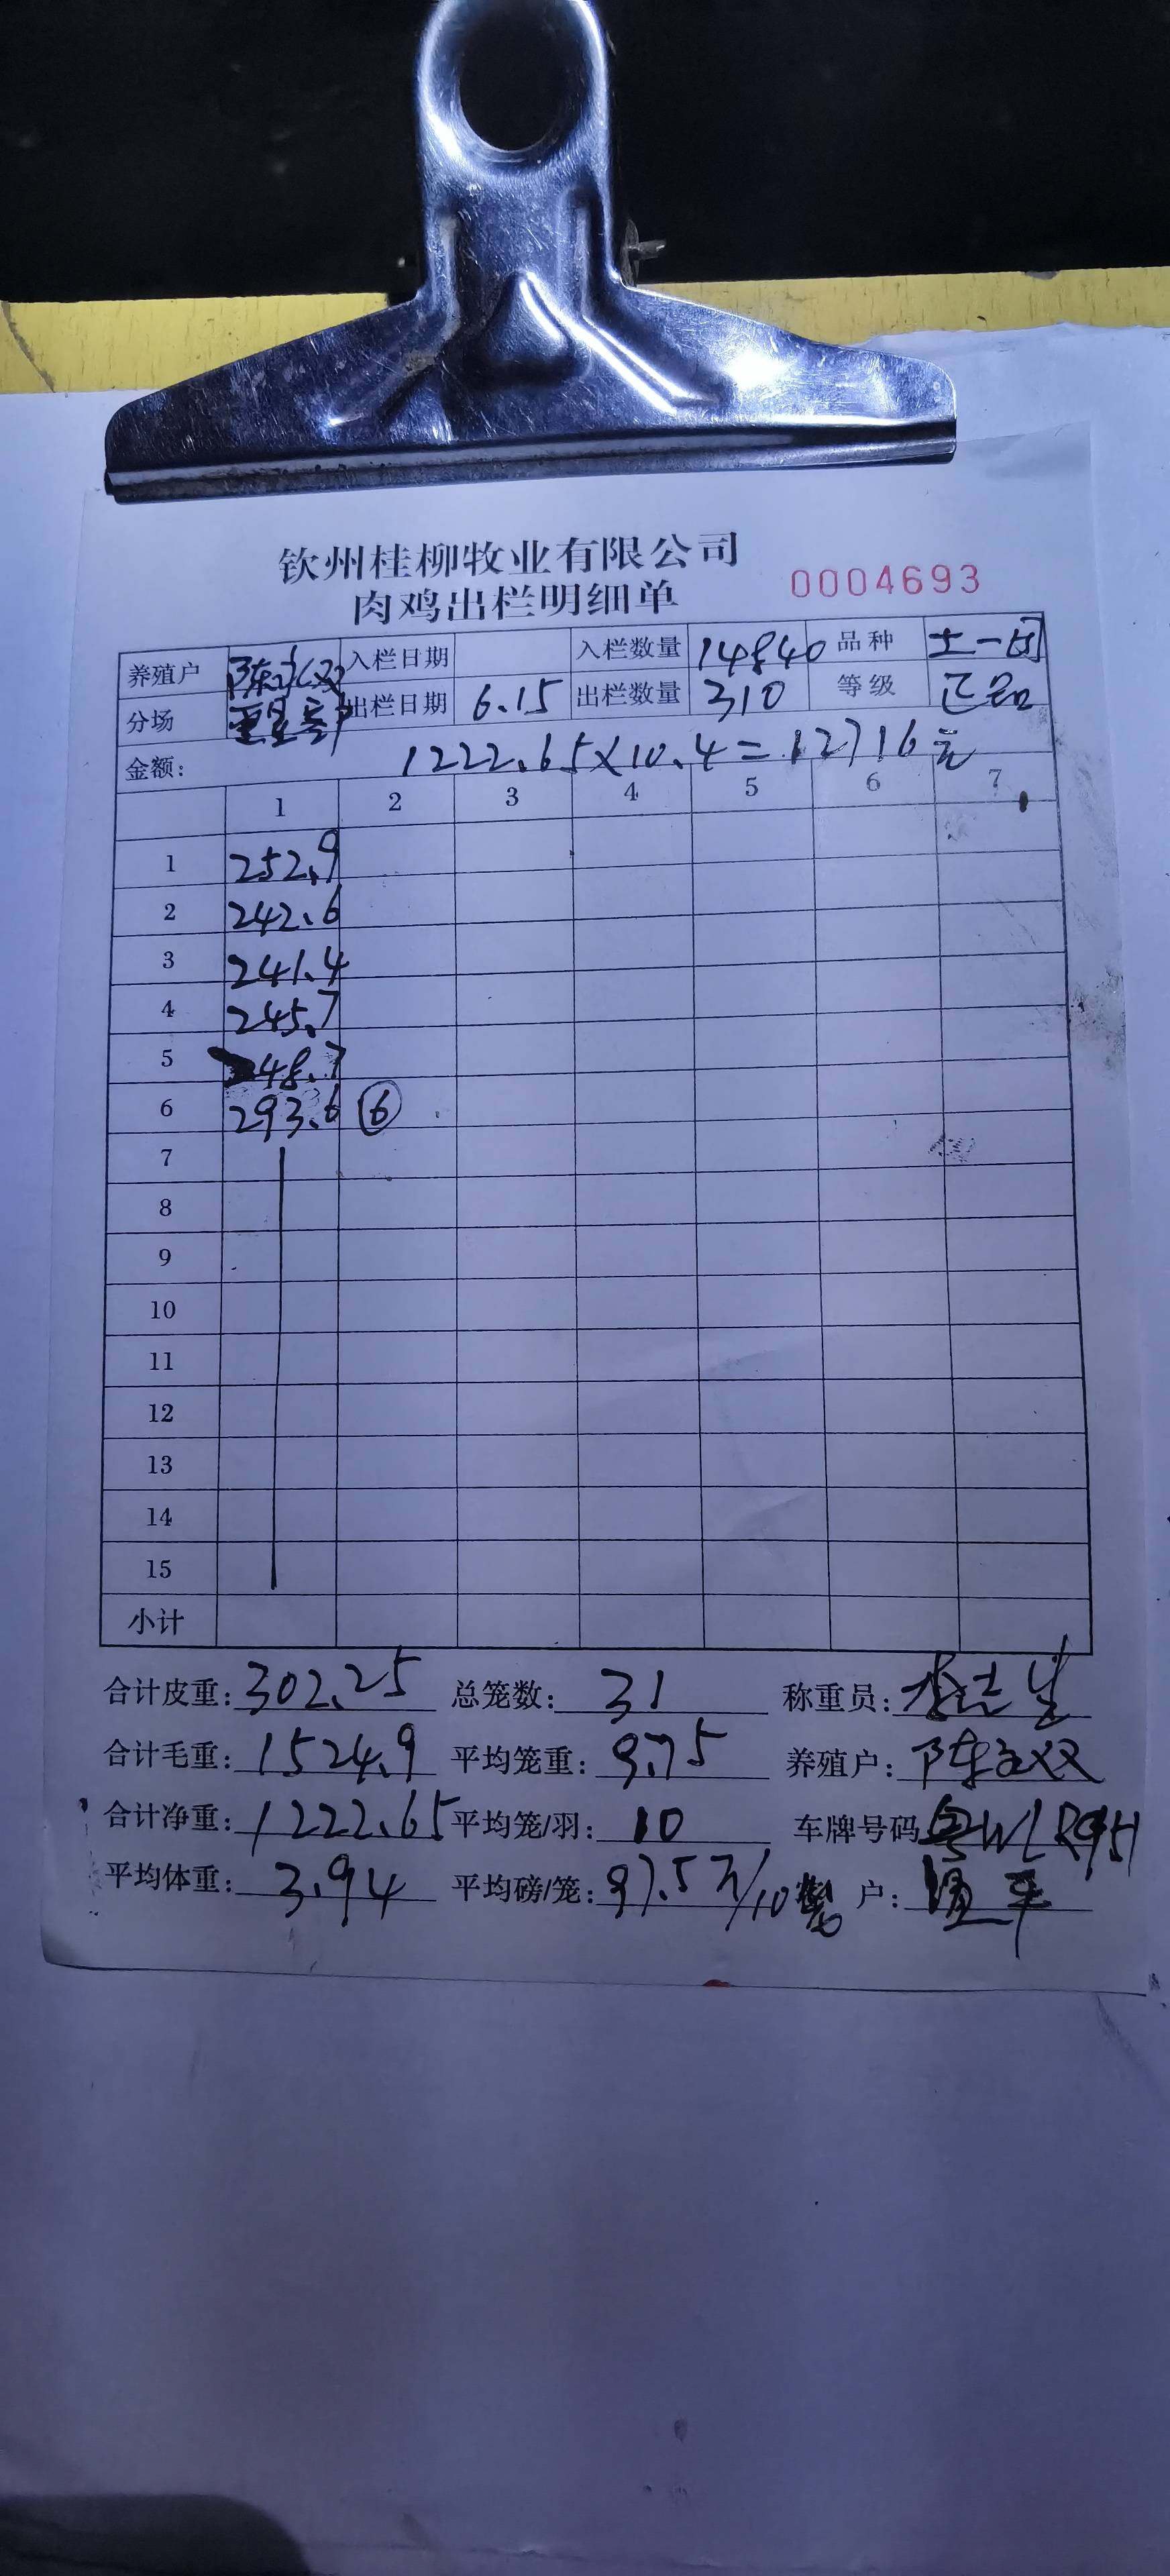 钦州桂柳牧业有限公司
肉鸡出栏明细单 0004693
养殖户 入栏日期 入栏数量 14840 品种 土一
分场 出栏日期 6.15 出栏数量 310 等级 正品
金额: 1222.65×10.4=12716元
1 2 3 4 5 6 7
1 252.9
2 242.6
3 241.4
4 245.7
5 248.7
6 293.6 ⑥
7
8
9
10
11
12
13
14
15
小计
合计皮重: 302.25 总笼数: 31 称重员:
合计毛重: 1524.9 平均笼重: 9.75 养殖户: 陈
合计净重: 1222.65 平均笼/羽: 10 车牌号码
平均体重: 3.94 平均磅/笼: 97.5 /10 户: